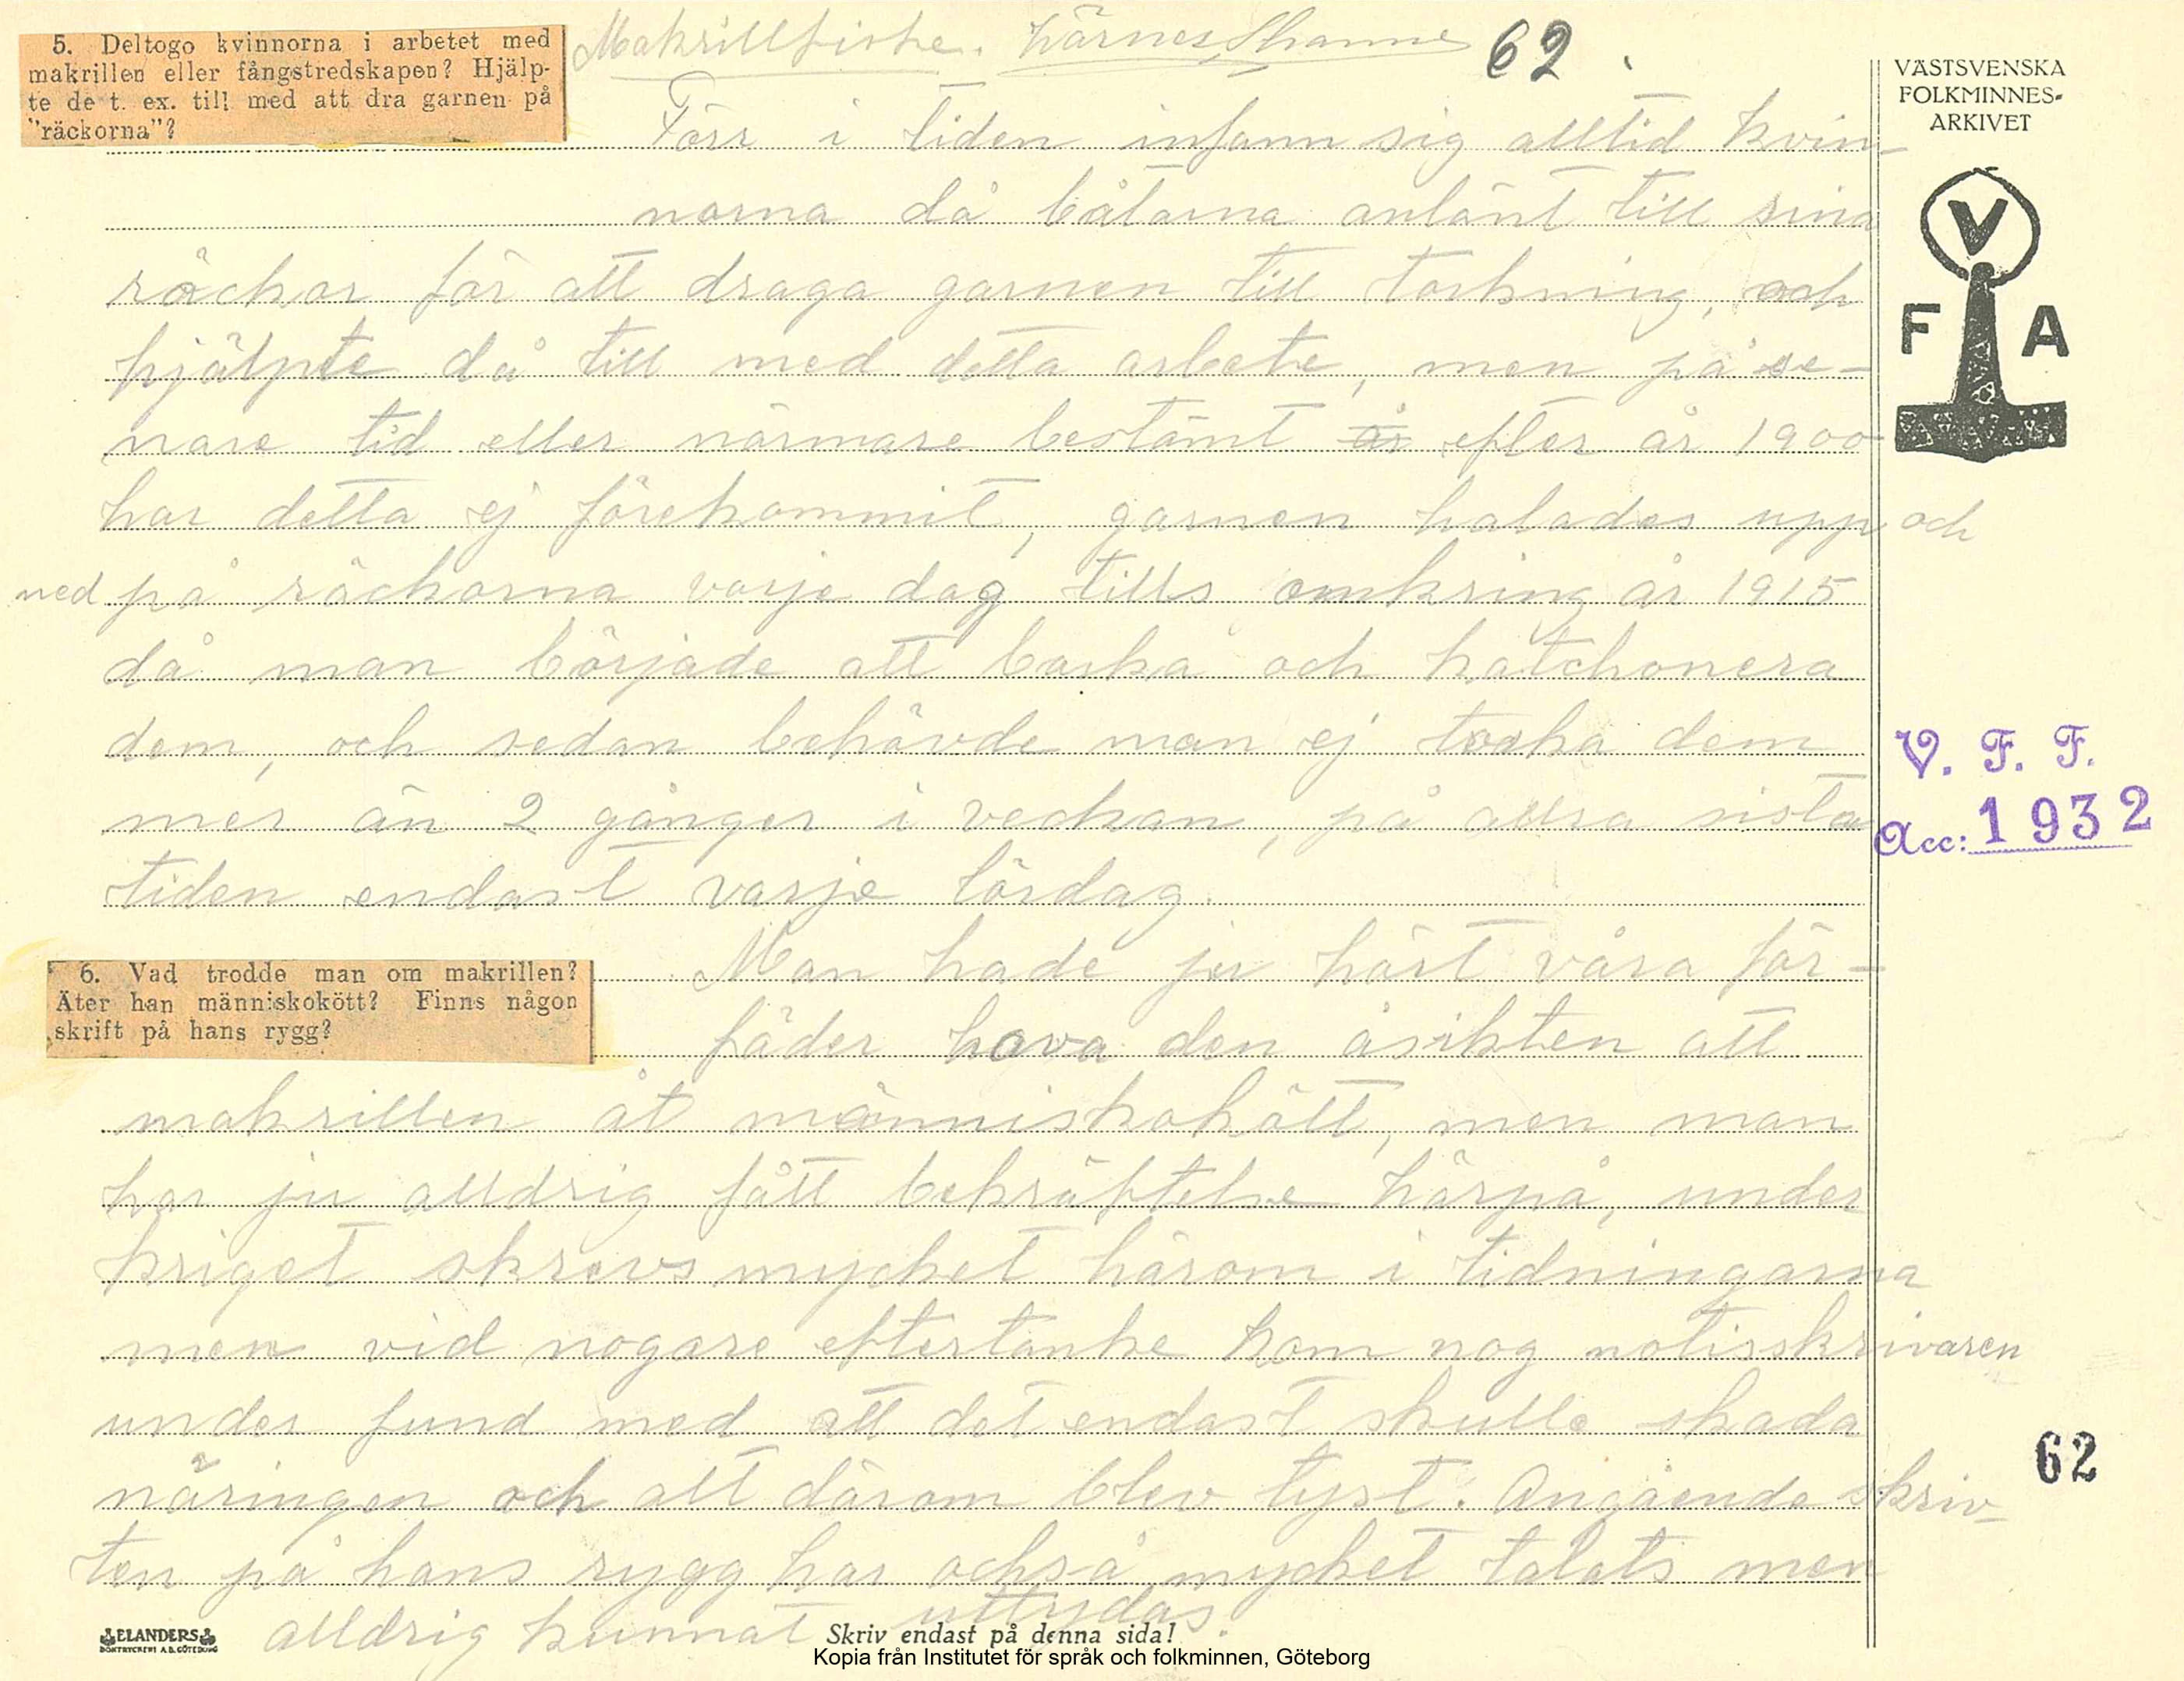 Makrillfiske. Härnes, Skanne 62.
5. Deltogo kvinnorna i arbetet med
makrillen eller fångstredskapen? Hjälp-
te de t. ex. till med att dra garnen på
"räckorna"?
Förr i tiden infann sig alltid kvin-
norna då båtarna anlänt till sina
räckor för att draga garnen till torkning, och
hjälpte då till med detta arbete, men på se-
nare tid eller närmare bestämt år efter år 1900
har detta ej förekommit, garnen halades upp och
ned på räckorna varje dag tills omkring år 1915
då man började att barka och katchonera
dem, och sedan behövde man ej torka dem
mer än 2 gånger i veckan, på allra sista
tiden endast varje lördag.
6. Vad trodde man om makrillen?
Äter han människokött? Finns någon
skrift på hans rygg?
Man hade ju hört våra för-
fäder hava den åsikten att
makrillen åt människokött, men man
har ju alldrig fått bekräftelse härpå, under
kriget skrevs mycket härom i tidningarna
men vid nogare eftertanke kom nog notisskrivaren
under fund med att det endast skulle skada
näringen och att därom blev tyst. Angående skriv-
ten på hans rygg har också mycket talats men
alldrig kunnat uttydas.
VÄSTSVENSKA
FOLKMINNES-
ARKIVET
V
F A
V. F. F.
Acc: 1932
62
ELANDERS
BOKTRYCKERI A.B. GÖTEBORG
Skriv endast på denna sida!
Kopia från Institutet för språk och folkminnen, Göteborg